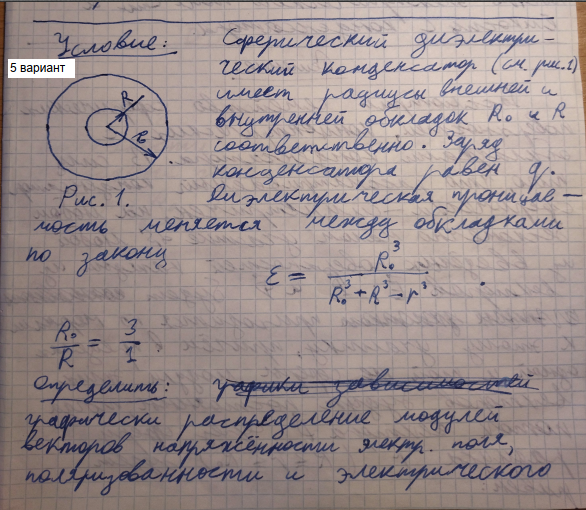 Условие: Сферический диэлектри-
5 вариант
ческий конденсатор (см. рис. 1)
имеет радиусы внешней и
внутренней обкладок R₀ и R
соответственно. Заряд
конденсатора равен q.
R
r
Рис. 1. Диэлектрическая проницае-
мость меняется между обкладками
по закону
ε = R₀³ / (R₀³ + R³ - r³) .
R₀/R = 3/1
Определить: графики зависимостей
графически распределение модулей
векторов напряжённости электр. поля,
поляризованности и электрического